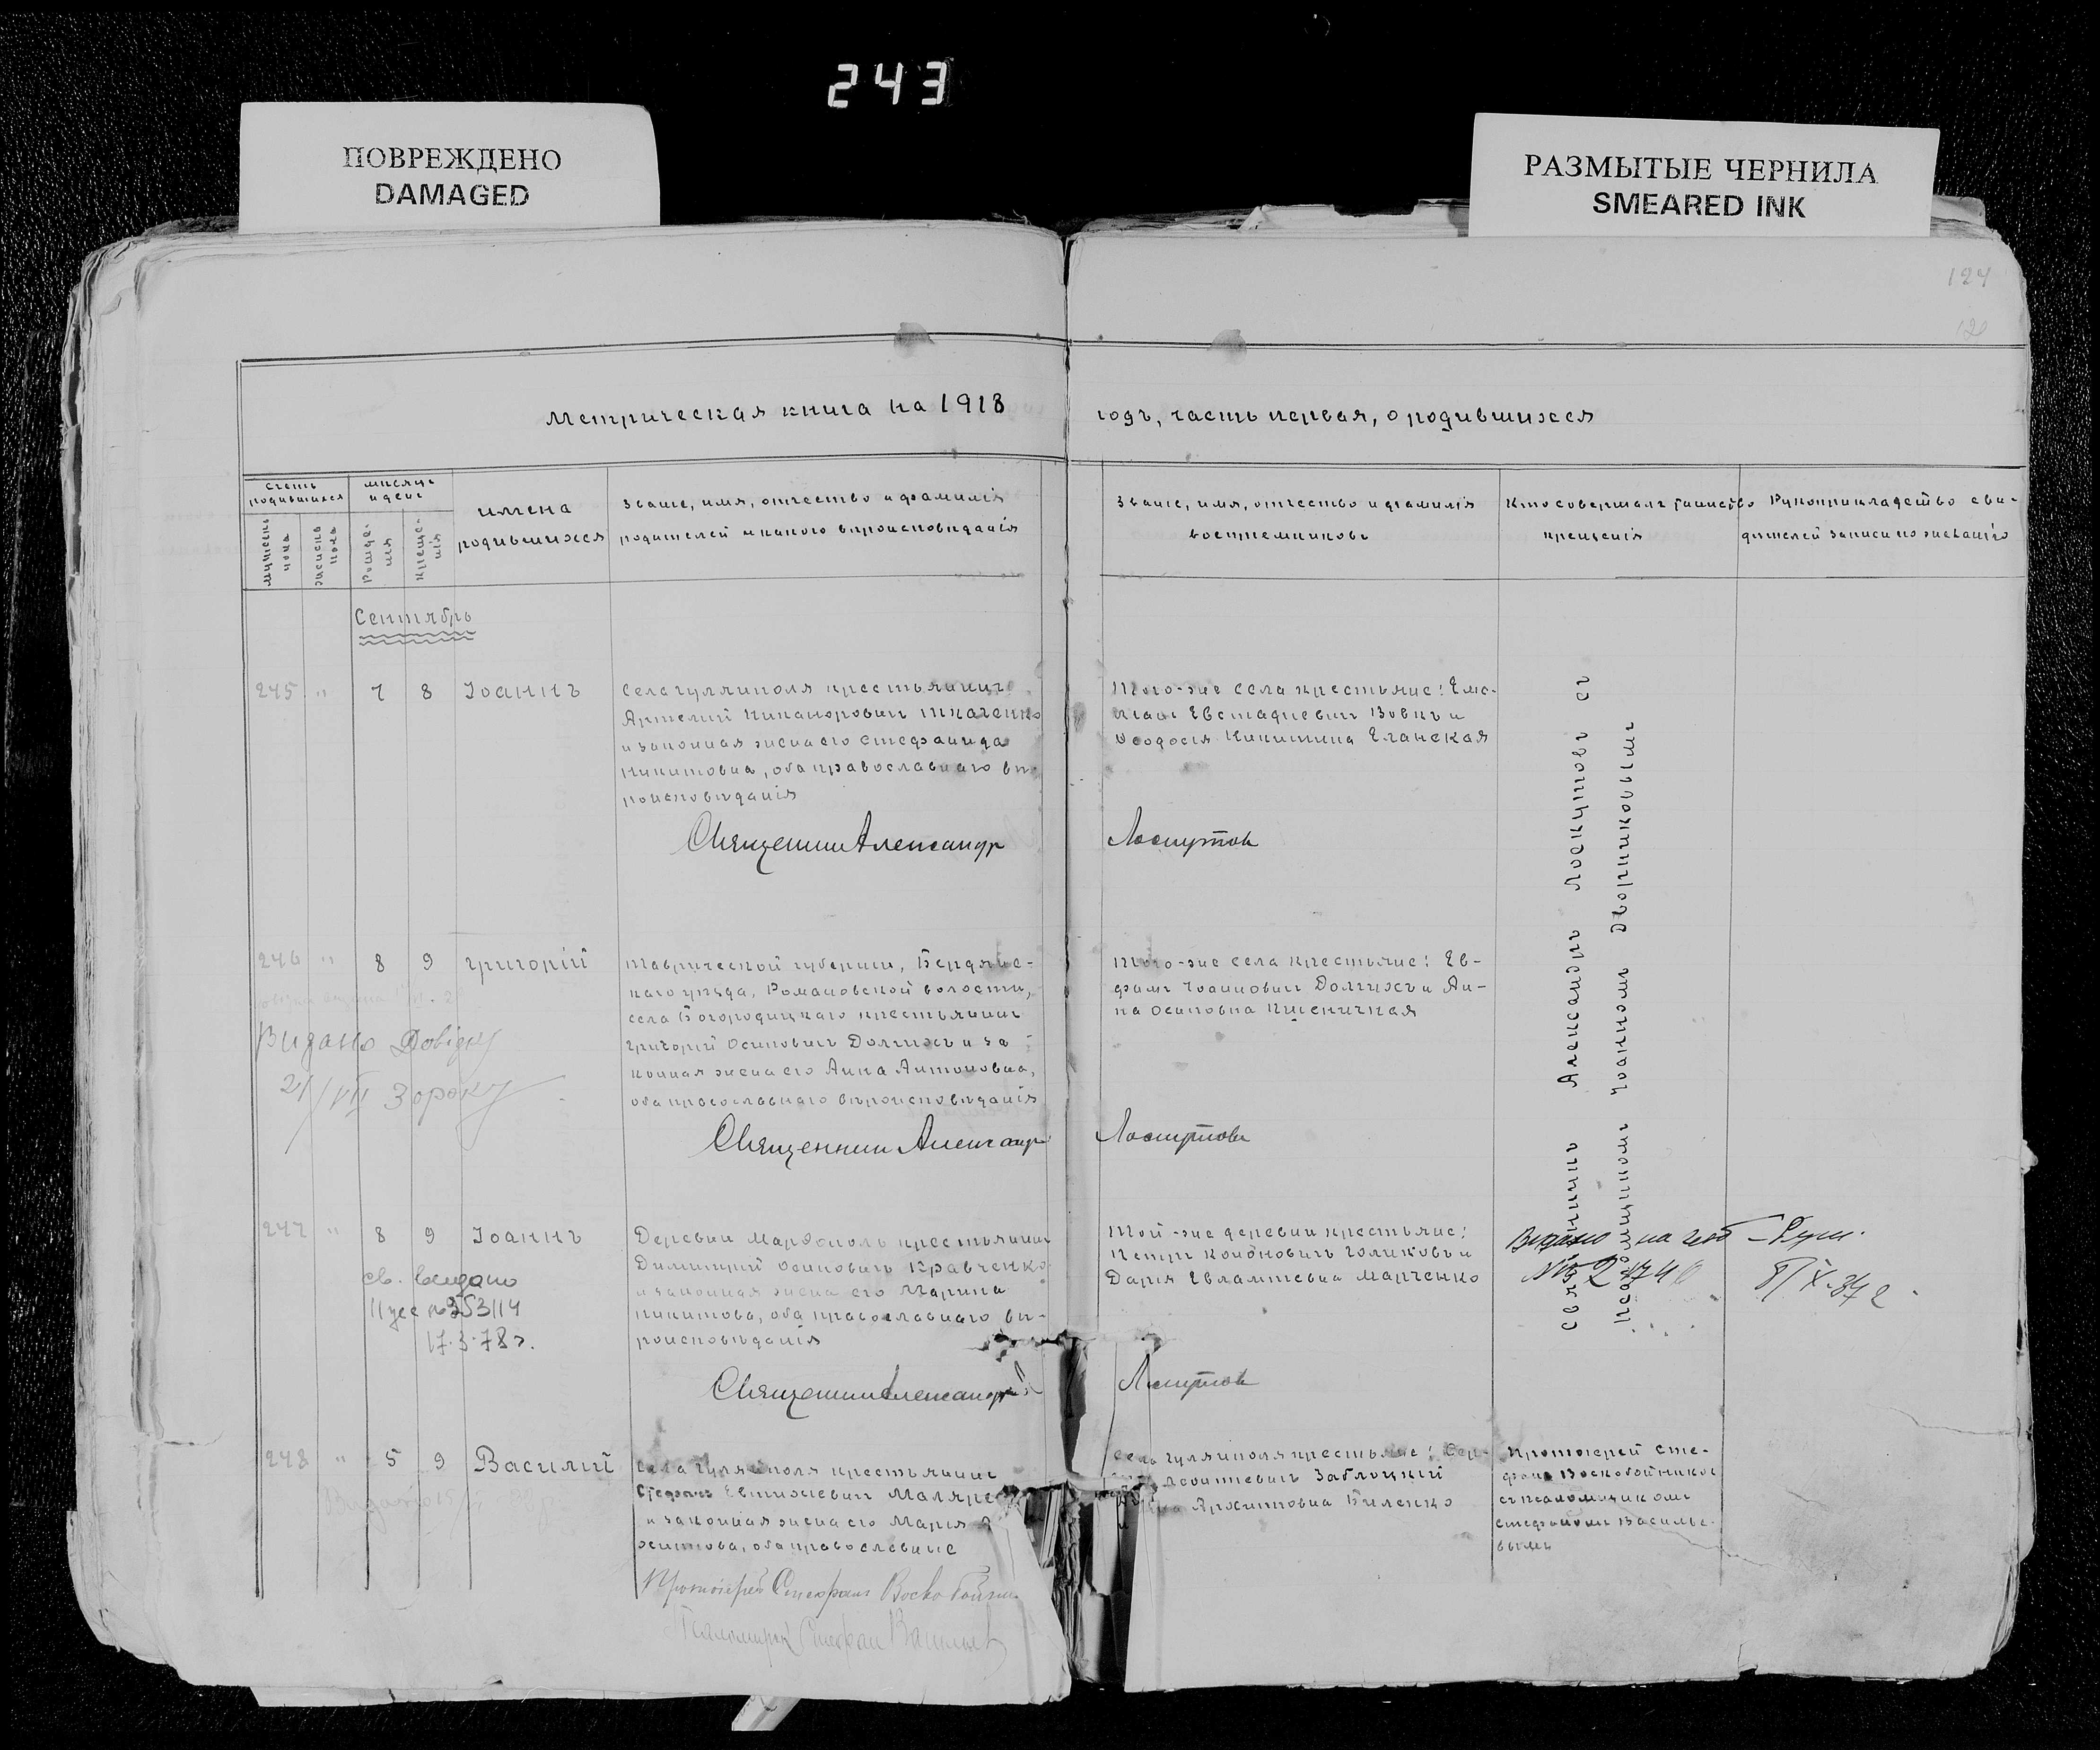 243
ПОВРЕЖДЕНО
DAMAGED
РАЗМЫТЫЕ ЧЕРНИЛА
SMEARED INK
124
Метрическая книга на 1918
годъ, часть первая, о родившихся
Счетъ родившихся
мужеска пола
женска пола
Мѣсяцъ и день
рожде-
нія
креще-
нія
имена
родившихся
Званіе, имя, отчество и фамилія
родителей и какого вѣроисповѣданія
Званіе, имя, отчество и фамилія
воспріемниковъ
Кто совершалъ таинство
крещенія
Рукоприкладство сви-
дѣтелей записи по желанію
Сентябрь
245 " 7 8 Іоаннъ
Села Гуляйполя крестьянинъ
Никаноровичъ Ткаченко
и законная жена его Стефанида
Никитовна, оба православнаго вѣ-
роисповѣданія
Того-же села крестьяне: Еме-
ліанъ Евстафіевичъ Вовкъ и
Ѳеодосія Никитина Еланская
Священникъ Александръ
Лоскутовъ
246 " 8 9 Григорій
Таврической губерніи, Бердянс-
каго уѣзда, Романовской волости,
села Богородицкаго крестьянинъ
Григорій Осиповичъ Долгихъ и за-
конная жена его Анна Антоновна,
оба православнаго вѣроисповѣданія
Того-же села крестьяне: Ев-
фимъ Іоанновичъ Долгихъ и Ан-
на Осиповна Пшеничная
Видано Довідку
21/VII 3 року
Священникъ Александръ
Лоскутовъ
247 " 8 9 Іоаннъ
Деревни Марфополь крестьянинъ
Димитрій Осиповичъ Кравченко
и законная жена его Марина
Никитова, оба православнаго вѣ-
роисповѣданія
Той-же деревни крестьяне:
Петръ Голиковъ и
Дарія Евлампіевна Марченко
св. выдано
№ 353114
17.3.78г.
Видано на
№ 2
IX-37 г.
Священникъ Александръ
Лоскутовъ
Священникъ Александръ Лоскутовъ съ
псаломщикомъ Іоанномъ Дворниковымъ
248 " 5 9 Василій
Села Гуляйполя крестьянинъ
Стефанъ Евтихіевичъ Маляре
и законная жена его Марія
оба православные
Села Гуляйполя крестьяне:
Леонтіевичъ Заблоцкій
и Архиповна Биленко
Протоіерей Сте-
фанъ Воскобойниковъ
съ псаломщикомъ
Стефаномъ Василье-
вымъ
Видано
Протоіерей Стефанъ Воскобойни
Псаломщикъ Стефан Васильев